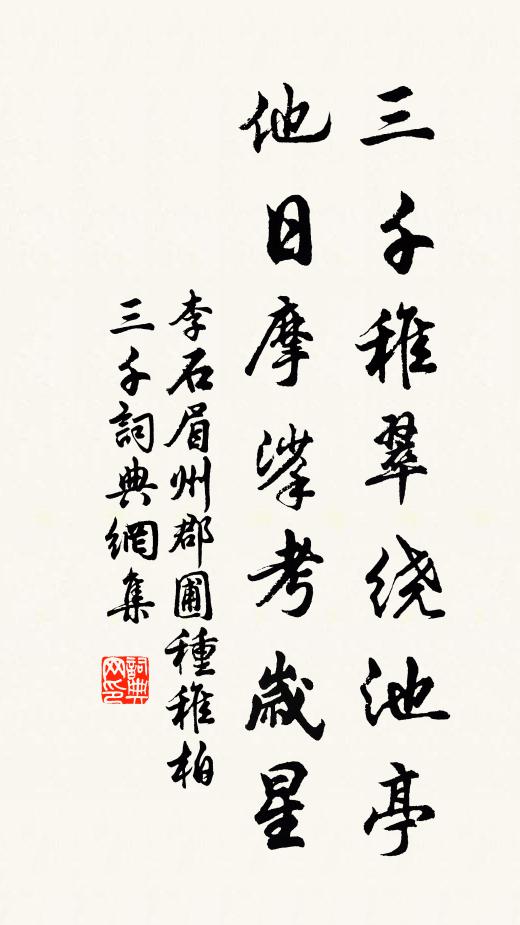 三千稚翠绕池亭
他日摩挲考歲星
李石眉州郡圃種稚柏
三千詞典網集
詞典网印